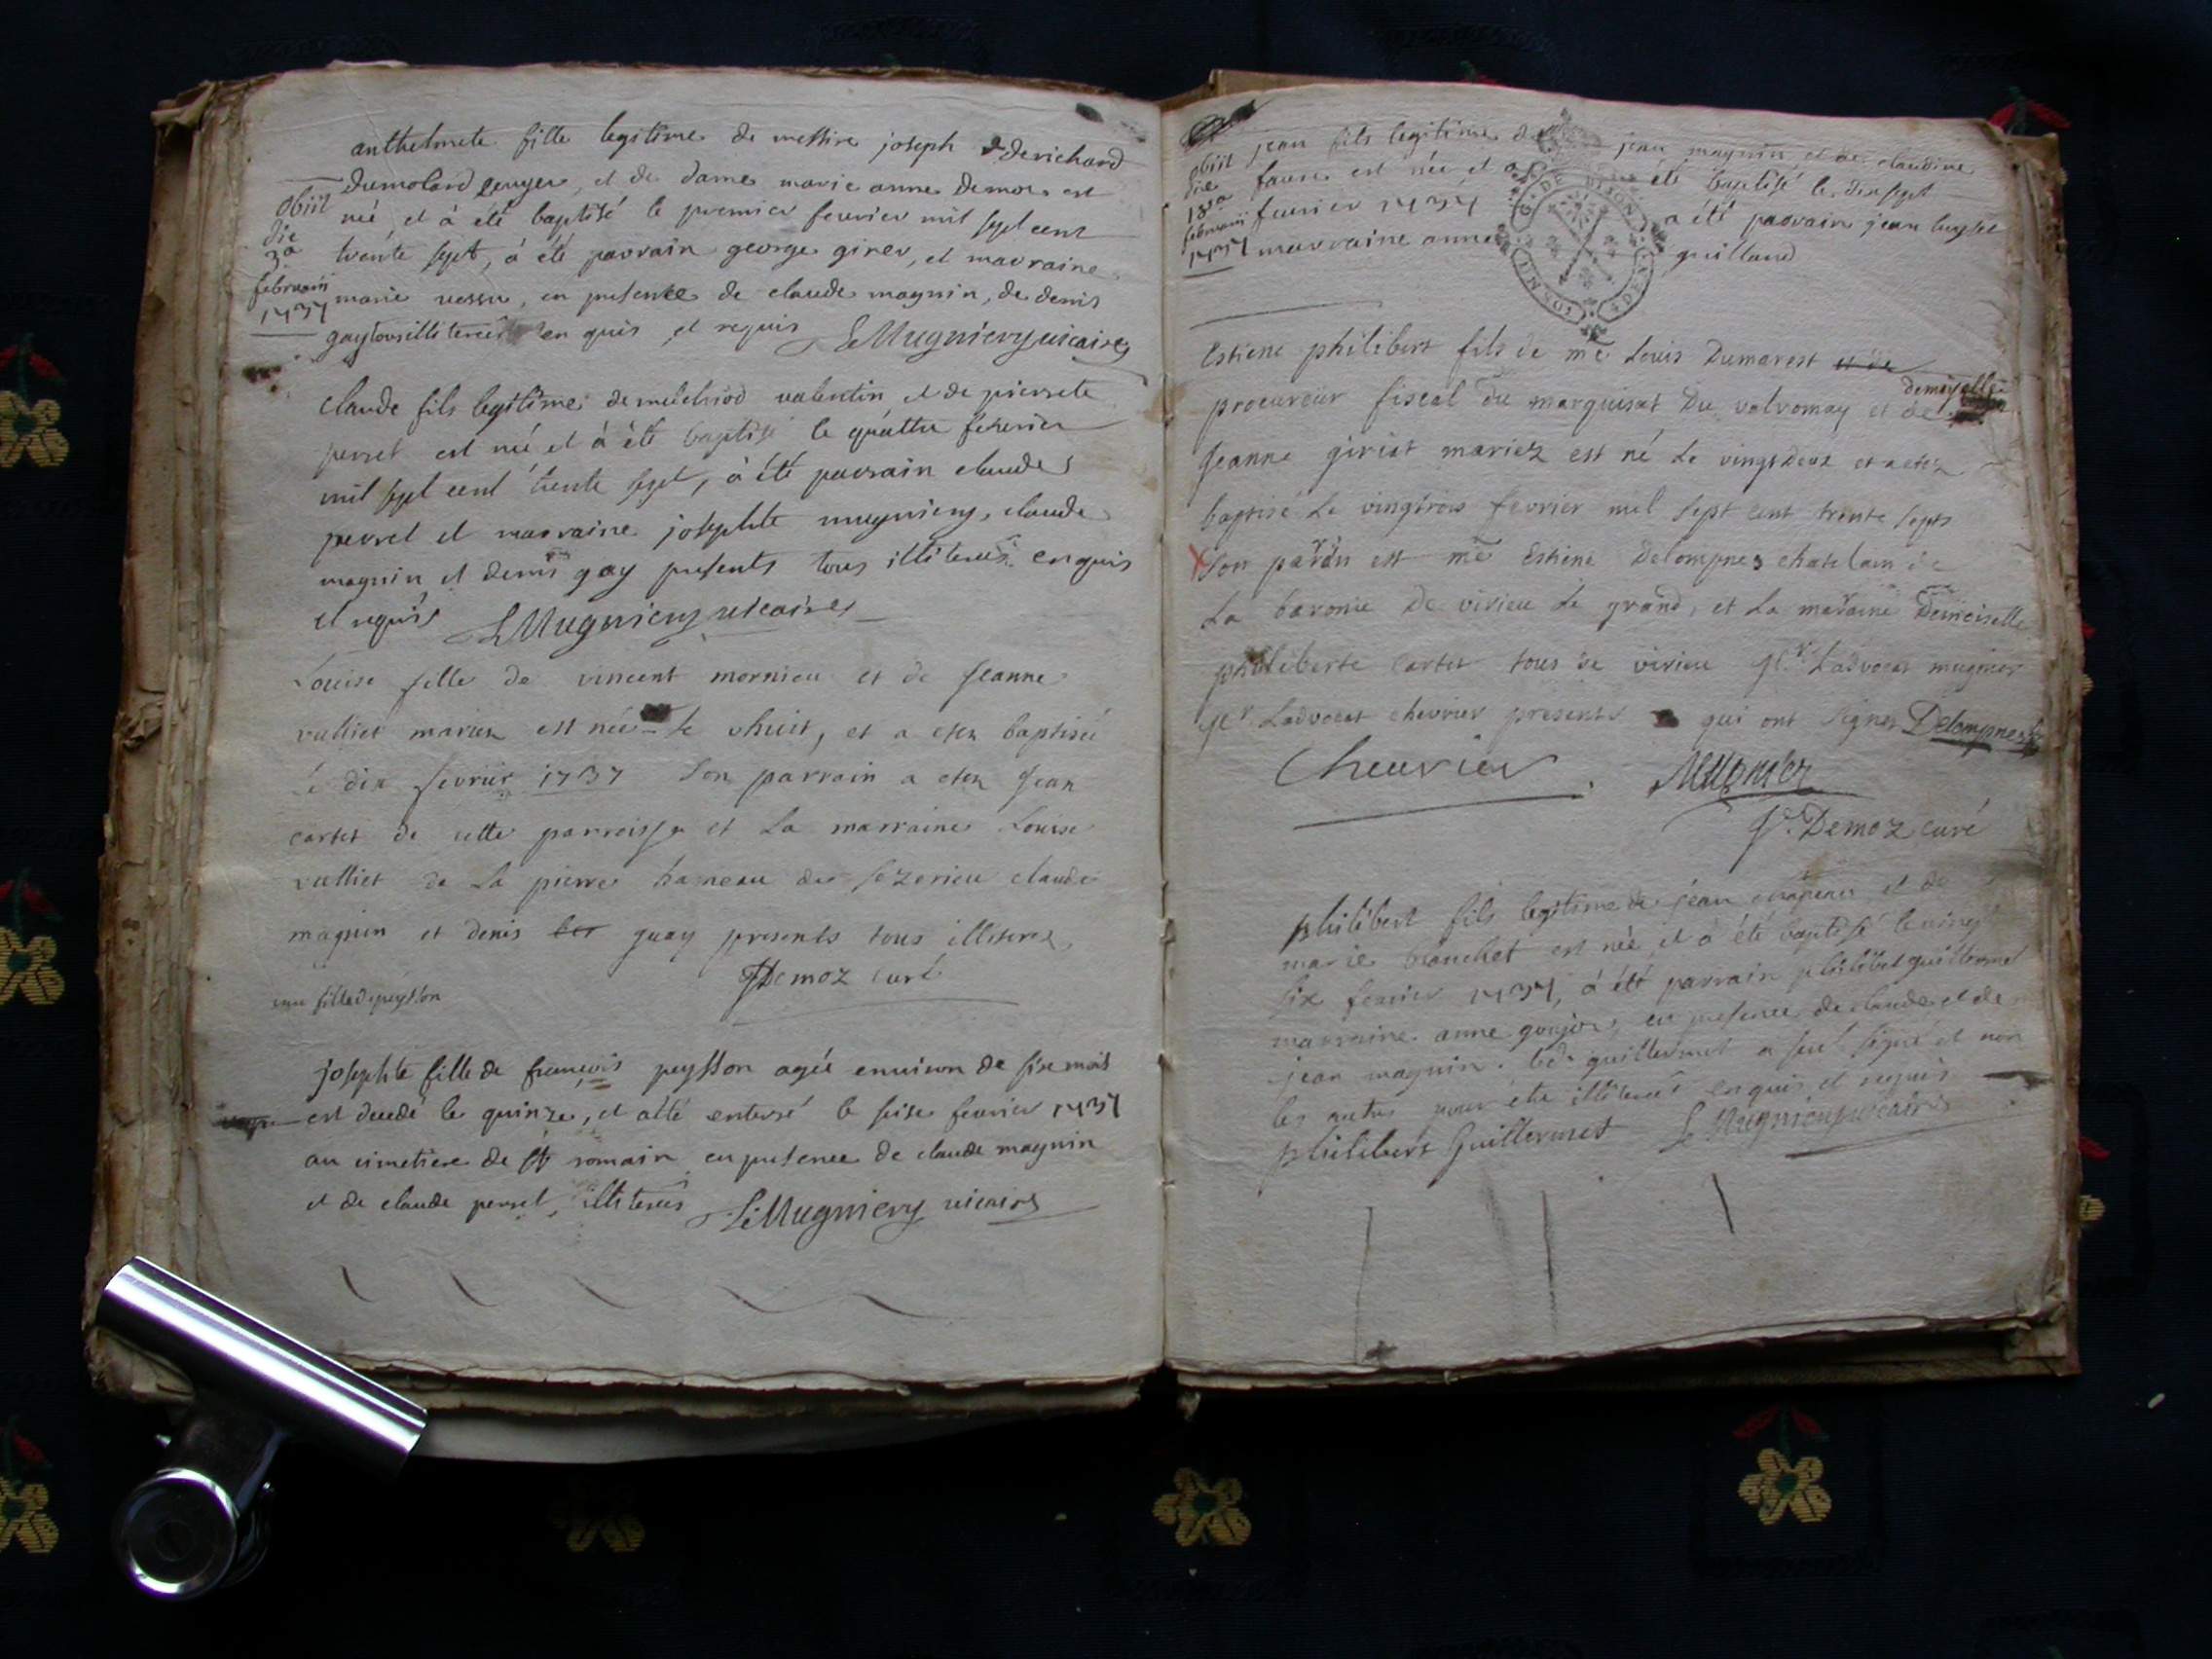 anthelmete fille legitime de messire joseph derichard
dumolard ecuyer, et de dame marie anne demoz est
obiit
die
3a
februarii
1737
née, et à été baptisé le premier feurier mil sept cent
trente sept, à été parrain george girer, et marraine
marie uessu, en presence de claude magnin, de denis
gay tous illiterés enquis et requis LMugniery uicaire
claude fils legitime de melchiod ualentin et de pierrete
perret est née et à été baptisé le quattre feurier
mil sept cent trente sept, à été parrain claude
perret et marraine josephte mugniery, claude
magnin et denis gay presents tous illiterés enquis
et requis LMugniery uicaire
Louise fille de vincent mornieu et de Jeanne
valliet mariez est née le vhuit, et a etez baptisée
le dix fevrier 1737 Son parrain a etez Jean
cartet de cette parroisse et La marraine Louise
valliet de La pierre hameau de sezerieu claude
magnin et denis guay presents tous illiteres
JDemoz curé
une fille de peysson
josephte fille de françois peysson agée enuiron de sixe mois
est decedé le quinze, et a été enterré le seise feurier 1737
au cimetiere de st romain en presence de claude magnin
et de claude perret, illiterés LMugniery uicaire
obiit
die
18a
februarii
1737
jean fils legitime de jean magnin et de claudine
faure est née et a été baptisé le dixsept
feurier 1737 a été parrain jean
marraine anne guilland
Estiene philibert fils de me Louis Dumarest et de
procureur fiscal du marquisat Du valromay et de demoyselle
Jeanne giriat mariez est né Le vingtdeux et a etez
baptisé Le vingtrois fevrier mil sept cent trente sept
Son parain est me Estiene Delompnes chatelain de
La baronie De virieu Le grand, et La maraine Demoiselle
philiberte cartet tous de virieu Sr Ladvocat mugnier
Sr Ladvocat chevrier presents qui ont signez Delompnes
Cheurier Mugnier
J. Demoz curé
philibert fils legitime de jean chapeau et de
marie blanchet est née et à été baptisé le vingt
six feurier 1737, à été parrain philibert guillermet
marraine anne goujon, en presence de claude et de
jean magnin. led. guillermet a seul signé et non
les autres pour être illiterés enquis et requis
philibert Guillermet LMugniery uicaire